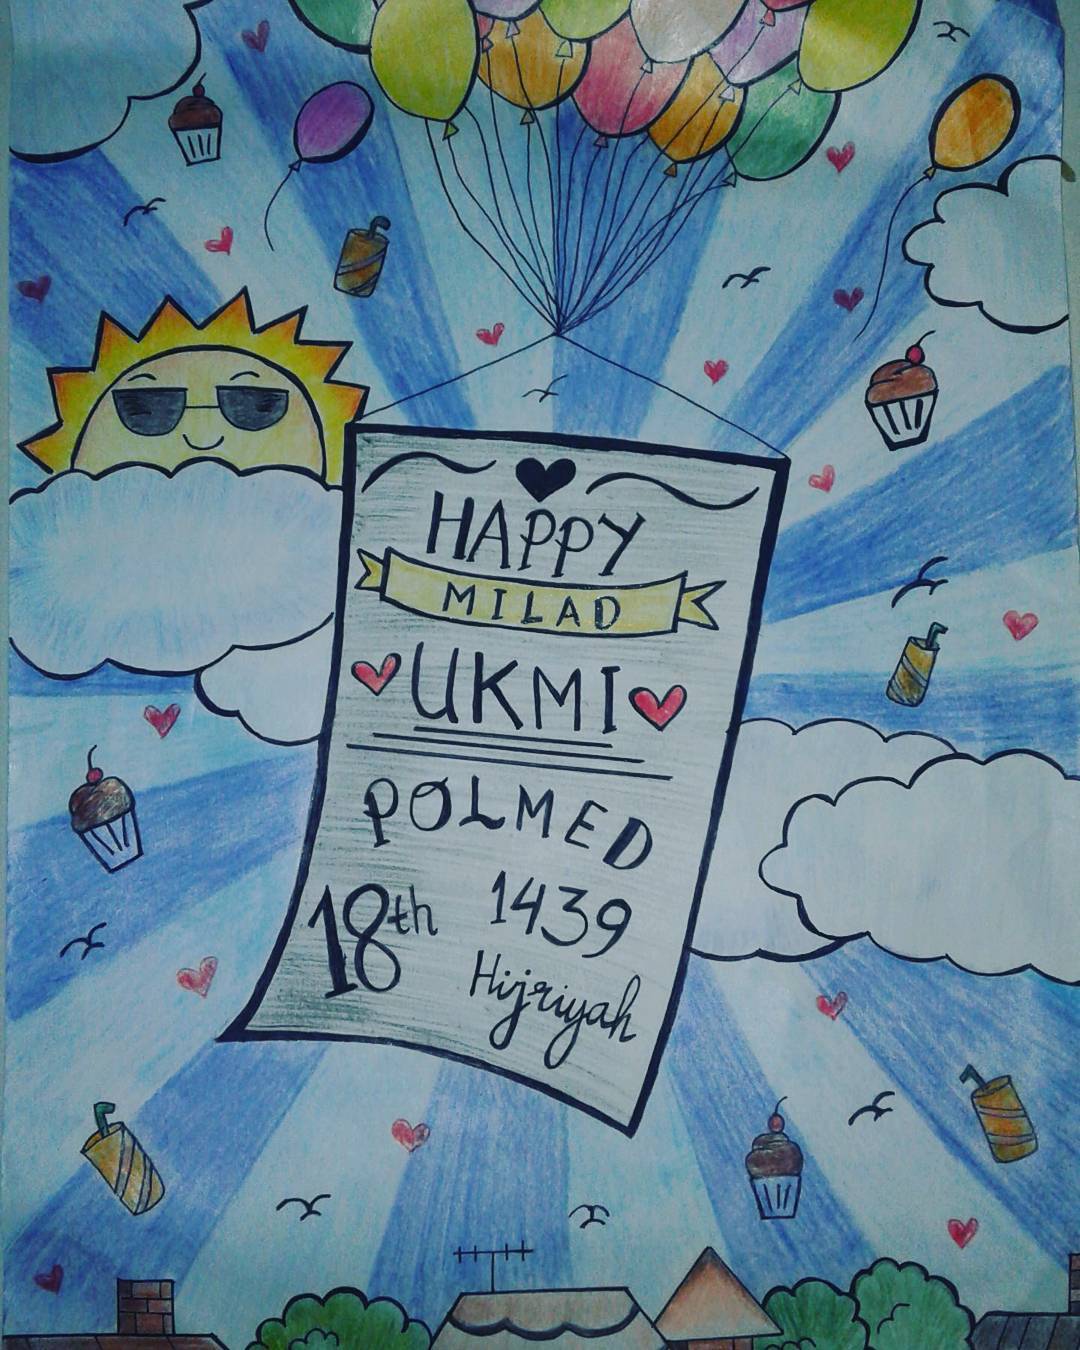 HAPPY
MILAD
UKMI
POLMED
18th 1439
Hijriyah